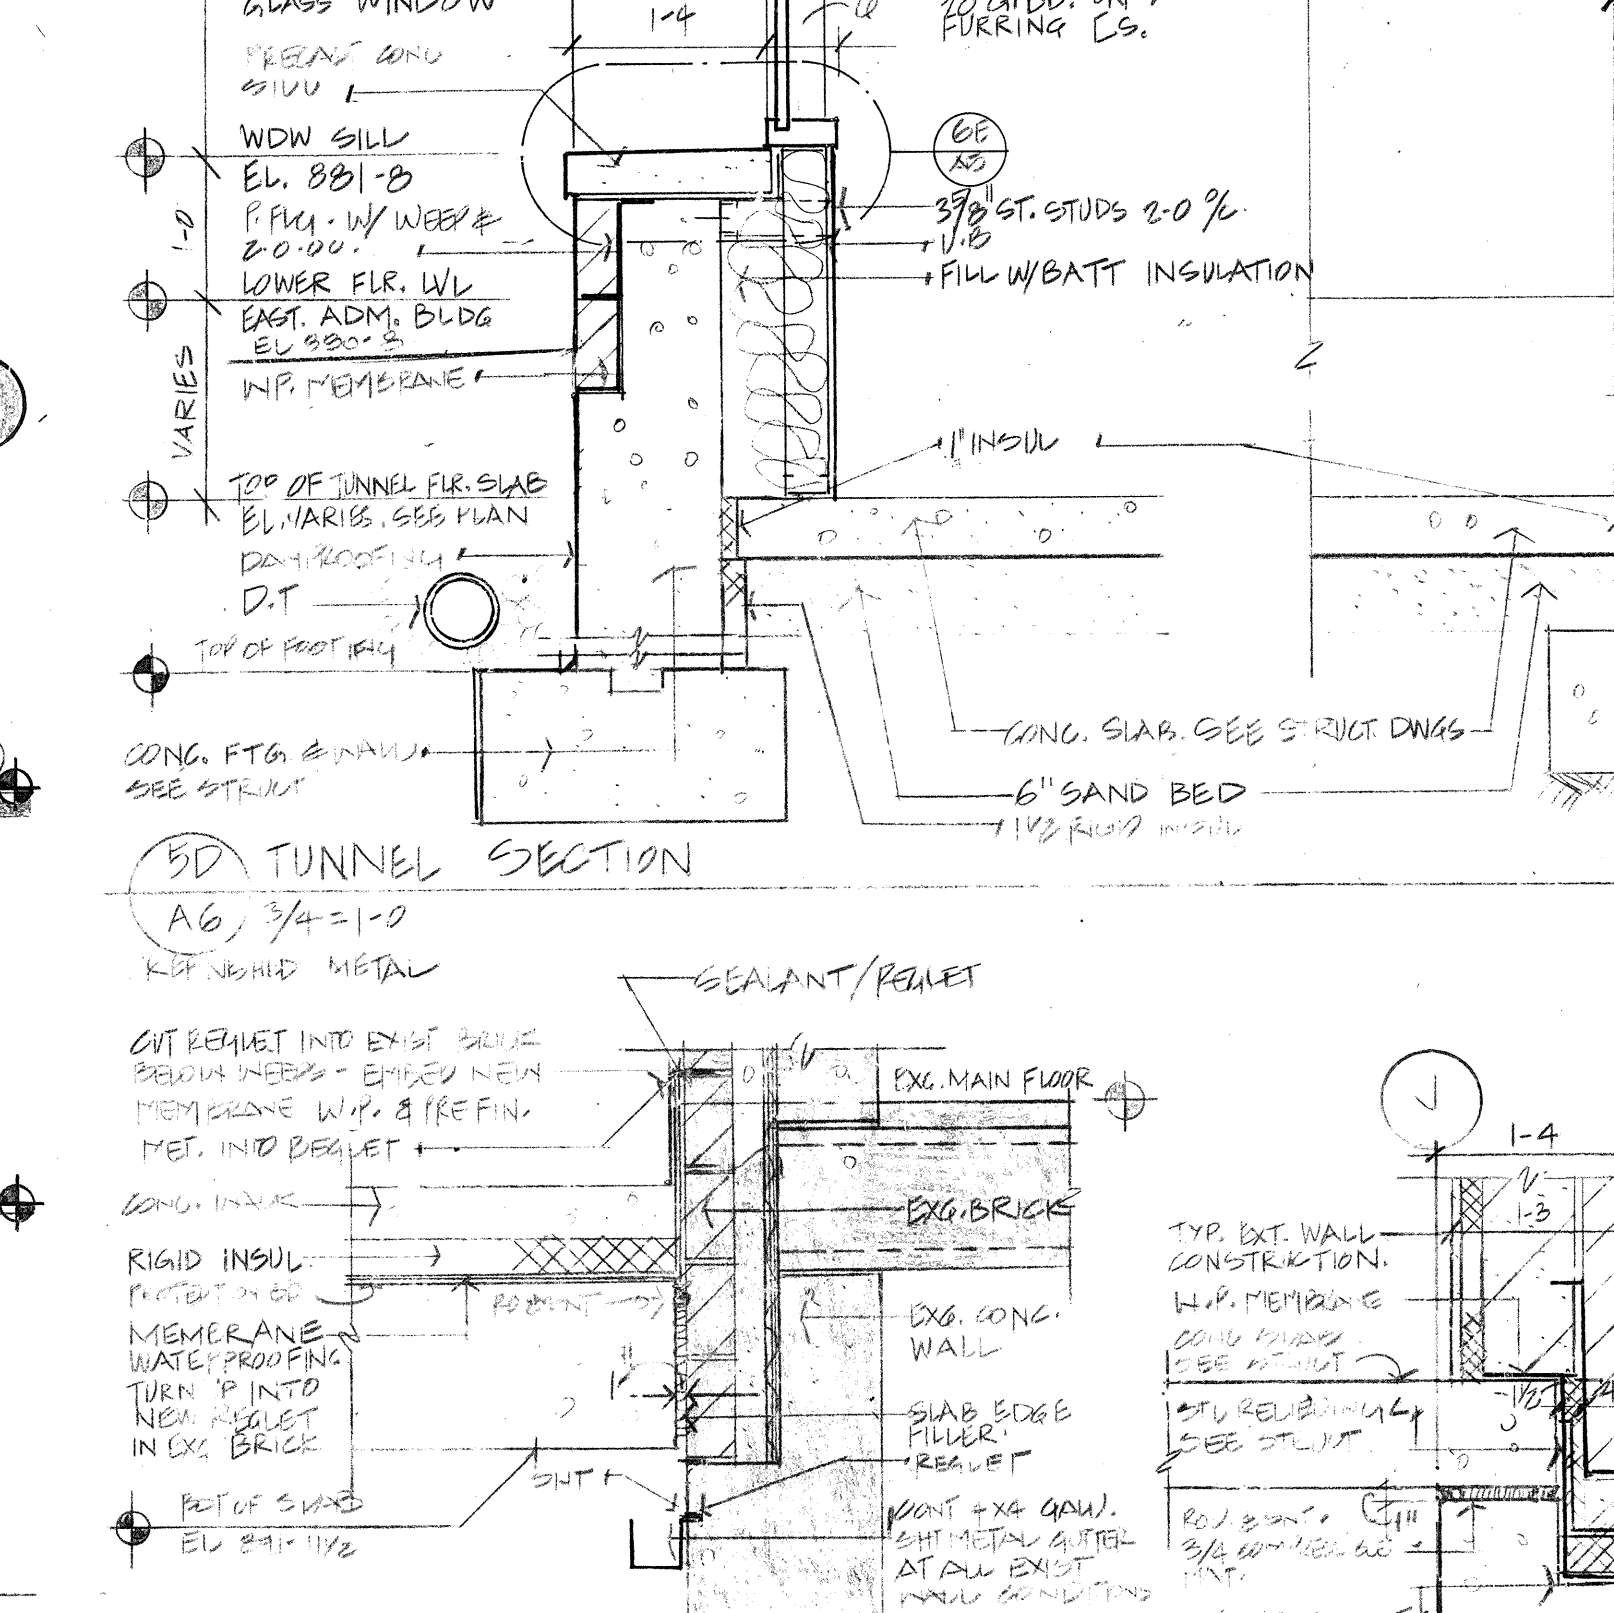 GLASS WINDOW
PRECAST CONC
SILL
WDW SILL
EL. 881-8
P. FLG. W/ WEEP &
2-0 OC.
LOWER FLR. LVL
EAST. ADM. BLDG
W.P. MEMBRANE
1-0
VARIES
TOP OF TUNNEL FLR. SLAB
EL. VARIES. SEE PLAN
DAMPROOFING
D.T
TOP OF FOOTING
CONC. FTG & WALL
SEE STRUCT
1-4
FURRING CS.
6E
A5
3 5/8" ST. STUDS 2-0 O/C.
V.B
FILL W/BATT INSULATION
1" INSUL
CONC. SLAB. SEE STRUCT. DWGS
6" SAND BED
1 1/2 RIGID INSUL
5D TUNNEL SECTION
A6 3/4 = 1-0
PREFINISHED METAL
SEALANT/REGLET
CUT REGLET INTO EXIST BRICK
BELOW WEEPS - EMBED NEW
MEMBRANE W.P. & PREFIN.
MET. INTO REGLET
CONC. WALK
RIGID INSUL
PROTECTION BD
MEMBRANE
WATERPROOFING
TURN UP INTO
NEW REGLET
IN EXG BRICK
BOT OF SLAB
EL 891-11 1/2
1"
SHT
EXG. MAIN FLOOR
EXG. BRICK
EXG. CONC.
WALL
SLAB EDGE
FILLER.
REGLET
CONT 4X4 GALV.
SHT METAL GUTTER
AT ALL EXIST
WALL CONDITIONS
J
1-4
1-3
TYP. EXT. WALL
CONSTRUCTION.
W.P. MEMBRANE
CONC SLAB
SEE STRUCT
1 1/2"
STL RELIEVING L
SEE STRUCT.
1"
3/4